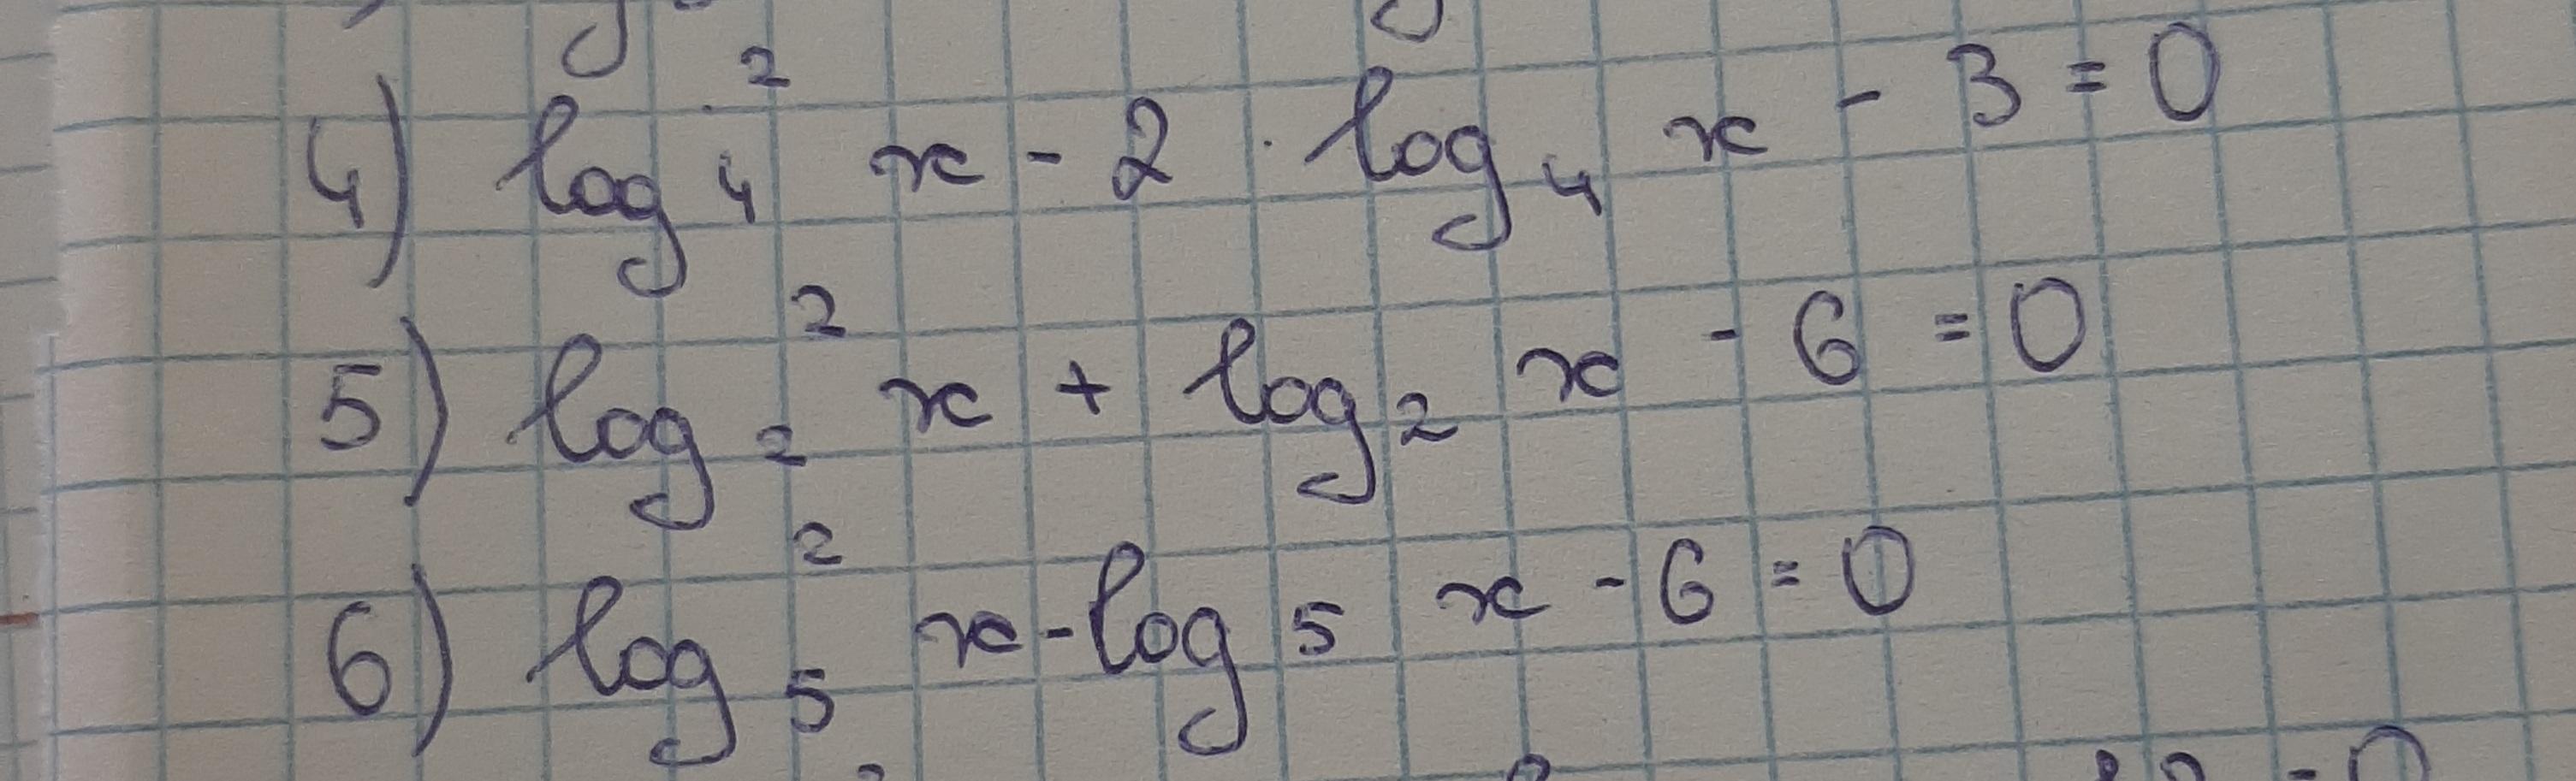 4) log₄² x - 2 · log₄ x - 3 = 0
5) log₂² x + log₂ x - 6 = 0
6) log₅² x - log₅ x - 6 = 0